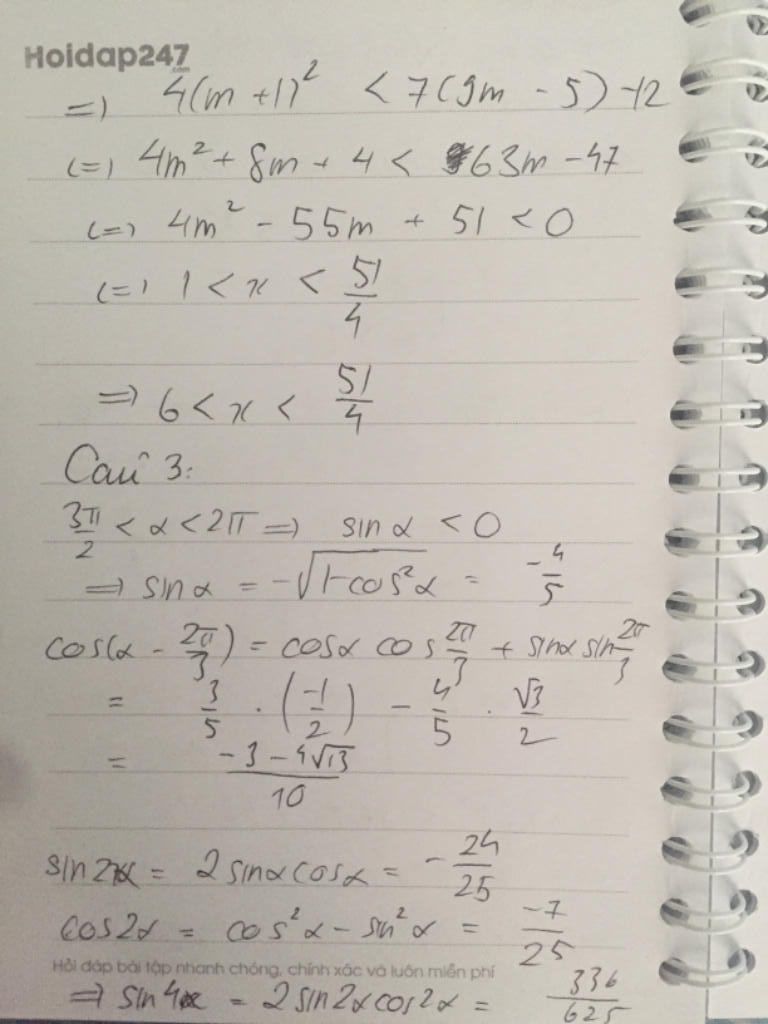 Hoidap247
.com
=) 4(m+1)² < 7(9m - 5) -12
(=) 4m² + 8m + 4 < 63m - 47
(=) 4m² - 55m + 51 < 0
(=) 1 < x < 51/4
=> 6 < x < 51/4
Câu 3:
3π/2 < α < 2π => sin α < 0
=> sin α = -√(1-cos²α) = -4/5
cos(α - 2π/3) = cosα cos 2π/3 + sinα sin 2π/3
= 3/5 . (-1/2) - 4/5 . √3/2
= (-3 - 4√3)/10
sin2α = 2 sinα cosα = - 24/25
cos2α = cos²α - sin²α = -7/25
Hỏi đáp bài tập nhanh chóng, chính xác và luôn miễn phí
=> sin4α = 2 sin2α cos2α = 336/625